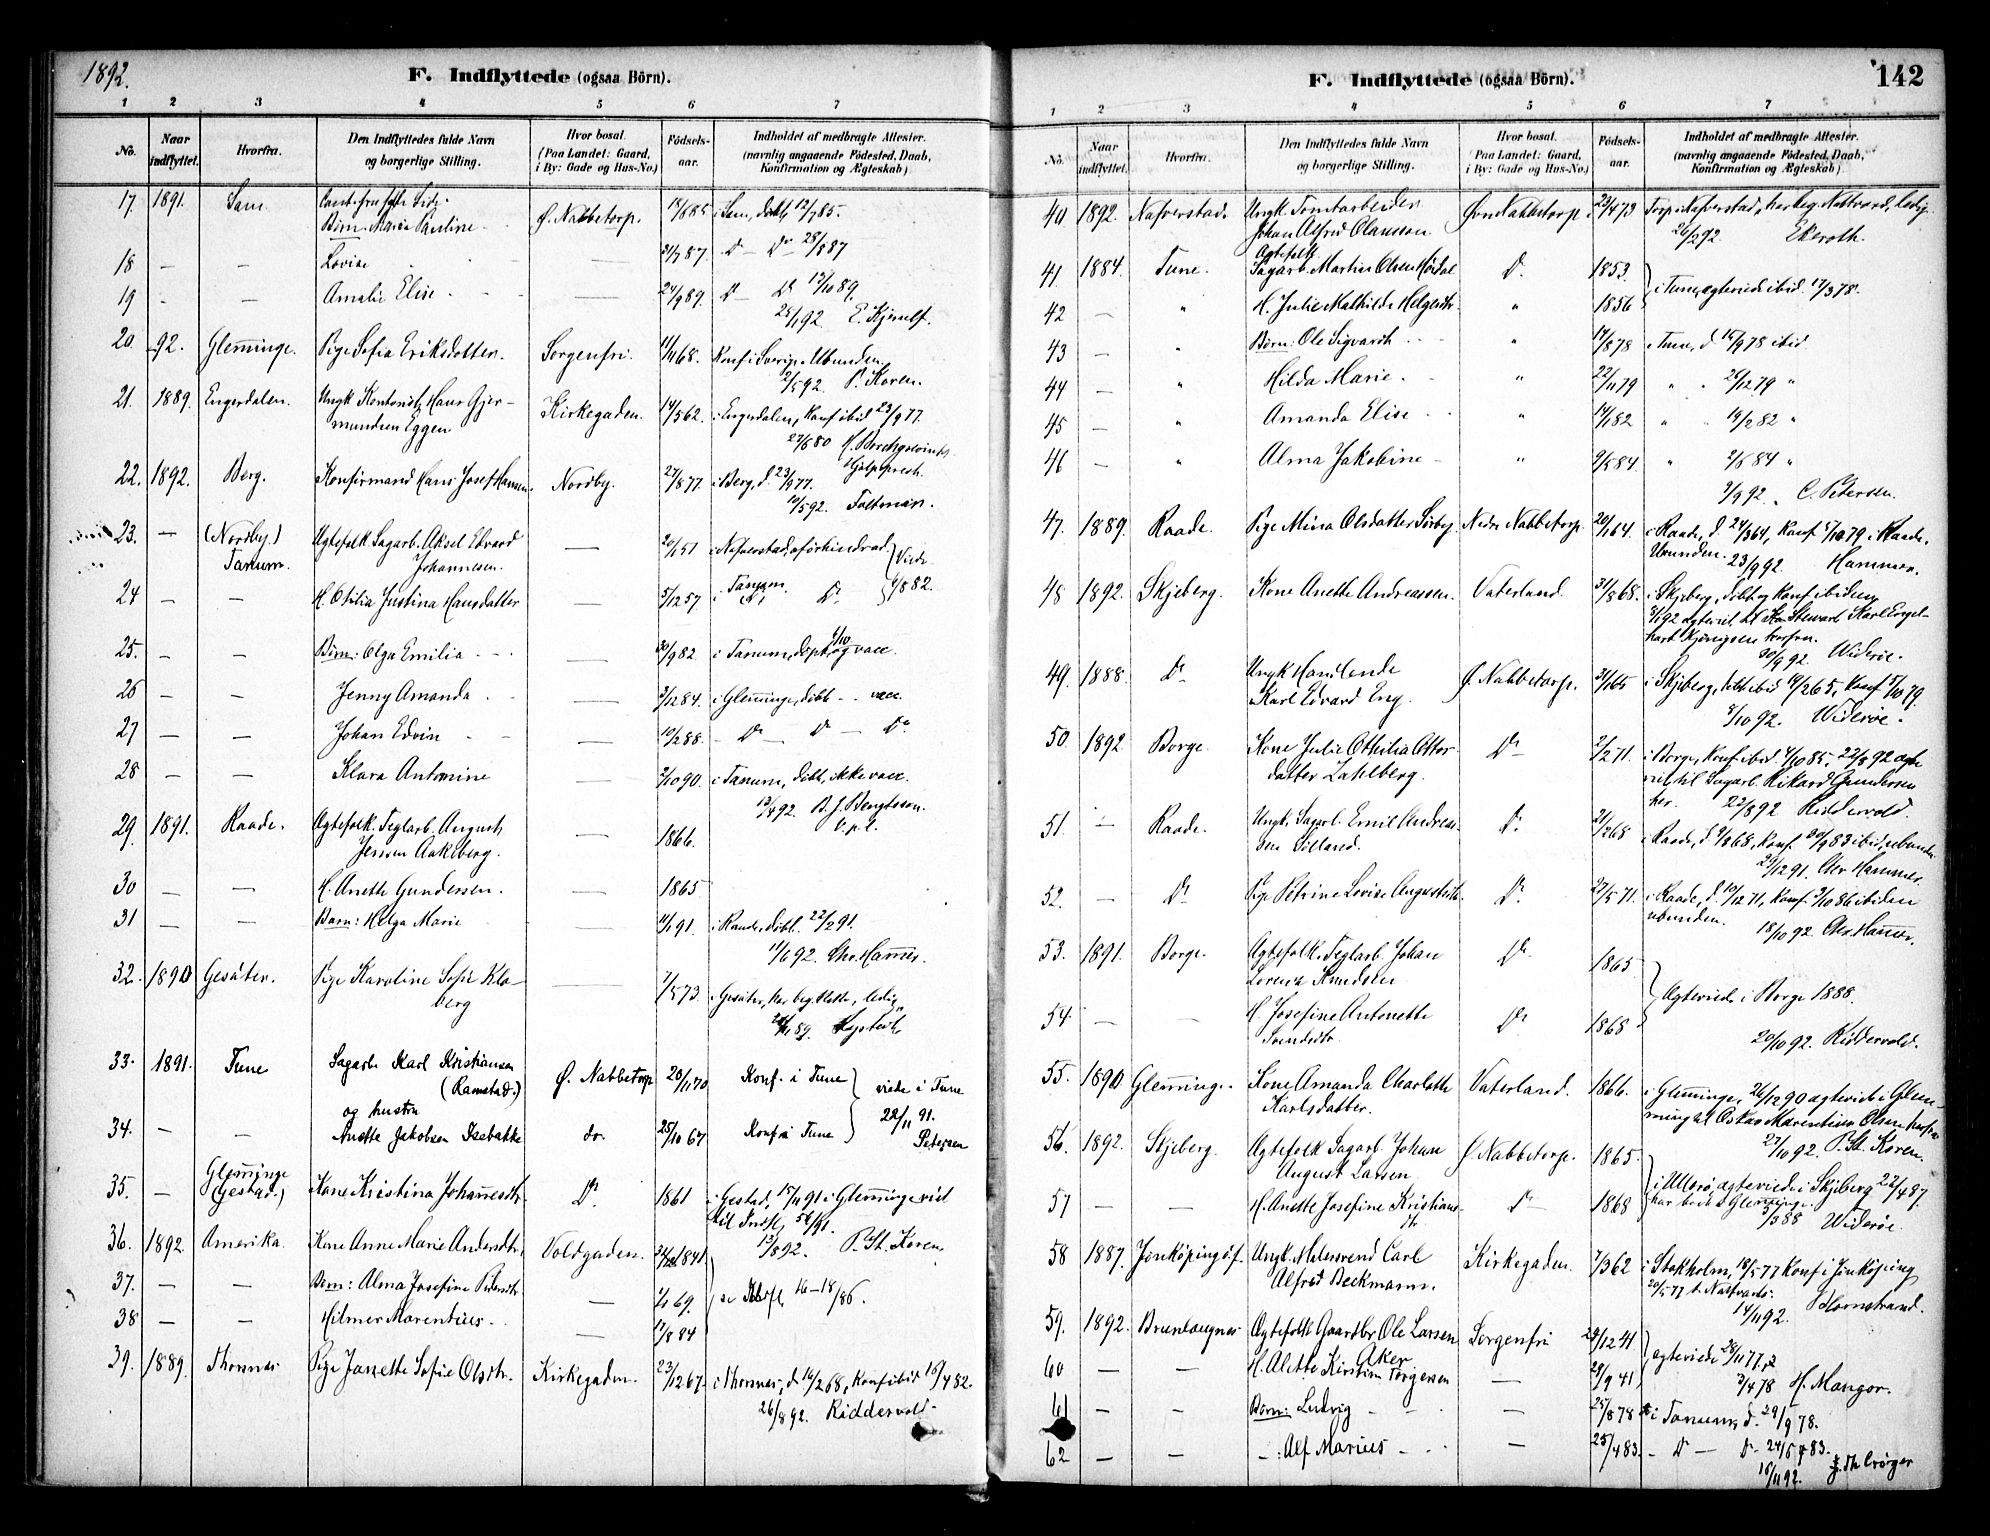 1892.
F. Indflyttede (ogsaa Börn).
1 2 3 4 5 6 7
No. Naar indflyttet. Hvorfra. Den Indflyttedes fulde Navn og borgerlige Stilling. Hvor bosat. (Paa Landet: Gaard, i By: Gade og Hus-No.) Födsels-aar. Indholdet af medbragte Attester. (navnlig angaaende Födested, Daab, Konfirmation og Ægteskab)
17. 1891. Sam
Börn: Maria Pauline Ø. Nabbetorp. i Sam, döbt 12/7 85.
18 — — Lovise 21/7 87 D — Do 28/8 87
19 — — Amalie Elise 24/9 89. D — Do 12/10 89.
25/1 92. E. Kjerulf.
20. -92. Glemminge. Pige Sofia Eriksdotter. Sorgenfri. 11/11 68. Konf i Sverig. Ubunden
2/5 92. P. Koren.
21. 1889. Engerdalen. Ungk. Kontorist Hans Gjer-
mundsen Eggen Kirkegaden. 14/5 62. i Engerdalen, Konf ibid 23/9 77.
22. 1892. Berg. Konfirmand Hans Josef Hansen. Nordby. 27/8 77. i Berg, d. 23/9 77.
10/5 92. Foltmar.
23. — (Nordby.)
Tanum. Ægtefolk Sagarb. Aksel Edvard
Johannesen. 20/1 51 i Nafverstad,
Viede
9/8 82.
24 — — H. Otilia Justina Hansdatter 5/12 57. i Tanum. Do
25. — — Börn: Olga Emilia 30/9 82 i Tanum, döpt og vacc.
26 — — Jenny Amanda 3/12 84. i Glemminge, döbt — vacc.
27 — — Johan Edvin 10/2 88. — Do — Do — Do
28 — — Klara Antonine 2/10 90. i Tanum, döbt, ikke vacc.
13/4 92. B. J. Bengtsson.
v.p.l.
29. 1891. Raade. Ægtefolk. Teglarb. August
Jensen Aakeberg. 1866.
30 — — H. Anette Gundersen. 1865
31 — — Barn: Helga Marie 11/1 91. i Raade, döbt 22/2 91.
11/6 92. Chr. Hammer.
32. 1890 Gesäter. Pige Karoline Sofie Klo-
berg 7/5 73. i Gesäter, har beg. Nattv., ledig
33. 1891. Tune Sagarb. Karl Kristiansen
(Ramstad.) Ø. Nabbetorp 20/11 70. Konf. i Tune viede i Tune
22/11 91.
Petersen
og hustru
34. — — Anette Jakobsen Isebakke do. 25/10 67 Konf i Tune
35. — Glemminge
(Gestad.) Kone Kristina Johannesdtr. Do. 1861 i Gestad, 15/11 91 i Glemminge viet
13/8 92. P. St. Koren
36. 1892. Amerika. Kone Anne Marie Andersdtr. Voldgaden. 1841.
37. — — Börn: Alma Josefine Pedersdtr. 1/1 69. se Udfl. 16–18/86.
38 — — Hilmer Marentius 17/8 84
39. 1889. Thorsnes Pige Janette Sofie Olsdtr. Kirkegaden. 23/12 67. i Thorsnes, d. 16/2 68, Konf ibid 16/4 82.
26/8 92. Riddervold.
F. Indflyttede (ogsaa Börn).
142
1 2 3 4 5 6 7
No. Naar indflyttet. Hvorfra. Den Indflyttedes fulde Navn og borgerlige Stilling. Hvor bosat. (Paa Landet: Gaard, i By: Gade og Hus-No.) Födsels-aar. Indholdet af medbragte Attester. (navnlig angaaende Födested, Daab, Konfirmation og Ægteskab)
40 1892. Nafverstad. Ungk. Tomtarbeider
Johan Alfred Olausson. Øvre Nabbetorp 23/4 73 Torp i Nafverstad, har beg. Nattvard, ledig.
26/2 92. Ekeroth.
41 1884. Tune. Ægtefolk
Sagarb. Martin Olsen Hördal Do. 1853 i Tune, ægteviede ibid 17/3 78.
42 — " H. Julie Mathilde Helgesdtr. " 1856
43 — " Börn: Ole Sigvardt " 17/8 78 i Tune, d. 15/9 78 ibid
44 — " Hilda Marie. " 22/11 79 " " 26/12 79 "
45 — " Amanda Elise " 14/1 82 " " 19/2 82 "
46 — " Alma Jakobine " 9/5 84. " 2/6 84 "
7/9 92. C. Petersen.
47. 1889. Raade. Pige Mina Olsdatter Sörby. Nedre Nabbetorp. 20/1 64. i Raade, d. 24/3 64, Konf 5/10 79 i Raade.
Ubunden. 23/9 92. Hammer.
48 1892. Skjeberg. Kone Anette Andreassen. Vaterland. 31/8 68. i Skjeberg, döbt og konf ibidem,
30/9 92. Wideröe.
49. 1888. Do Ungk. Handlende
Karl Edvard Eng. Ø. Nabbetorp. 31/1 65 i Skjeberg, döbt ibid 19/2 65, Konf 5/10 79.
8/10 92. Wideröe.
50. 1892 Borge. Kone Julie Othilia Ottos-
datter Zahlberg. Do 2/2 71. i Borge, Konf ibid. 4/10 85, 22/8 92 ægte
viet til Sagarb. Rikard Gundersen
her. 22/8 92 Riddervold.
51. — Raade. Ungk. Sagarb. Emil Andreas-
sen Do. 21/2 68 i Raade, d. 9/3 68, konf. 30/9 83 ibid, ubunden
29/12 91. Chr. Hammer.
52. — Do Pige Petrine Lovise Augustsdtr. Do. 27/5 71. i Raade, d. 10/12 71, Konf. 3/10 86 ibidem
ubunden. 18/10 92. Chr. Hammer.
53. 1891. Borge. Ægtefolk. Teglarb. Johan
Lorens Knudsen Do. 1865 Ægteviede i Borge 1888.
54. — — H. Josefine Antonette
Svendsdtr. Do 1868
20/10 92. Riddervold.
55. 1890. Glemminge. Kone Amanda Charlotte
Karlsdatter. Vaterland. 1866. i Glemminge, 26/12 90 ægteviet i Glem-
minge til Oskar Marentius Olsen herfra
27/10 92. P. St. Koren.
56. 1892. Skjeberg. Ægtefolk Sagarb. Johan
August Larsen Ø. Nabbetorp. 1865 ægteviede i Skjeberg 22/4 87.
57 — — H. Anette Josefine Kristians-
dtr. Do 1868 5/3 88 Wideröe.
58 1887. Jonköping s.f. Ungk. Malersvend Carl
Alfred Beckmann. Kirkegaden. 7/3 62 i Stokholm, 18/5 77 Konf i Jönköping
20/5 77 t. Nattvards.
14/11 92. Hornstrand.
59. 1892. Brunlaugnes Ægtefolk Gaardbr. Ole Larsen
Aker Sorgenfri 24/12 41 ægteviede 28/11 77.
60 — — H. Alette Kirstine Torgersen — 28/9 41 3/4 78 H. Mangor.
61 — — Börn: Ludvig — 25/8 78 i Tanum, d. 29/9 78.
62 — — Alf Marius — 25/4 83. — D — Do 24/6 83.
16/11 92.